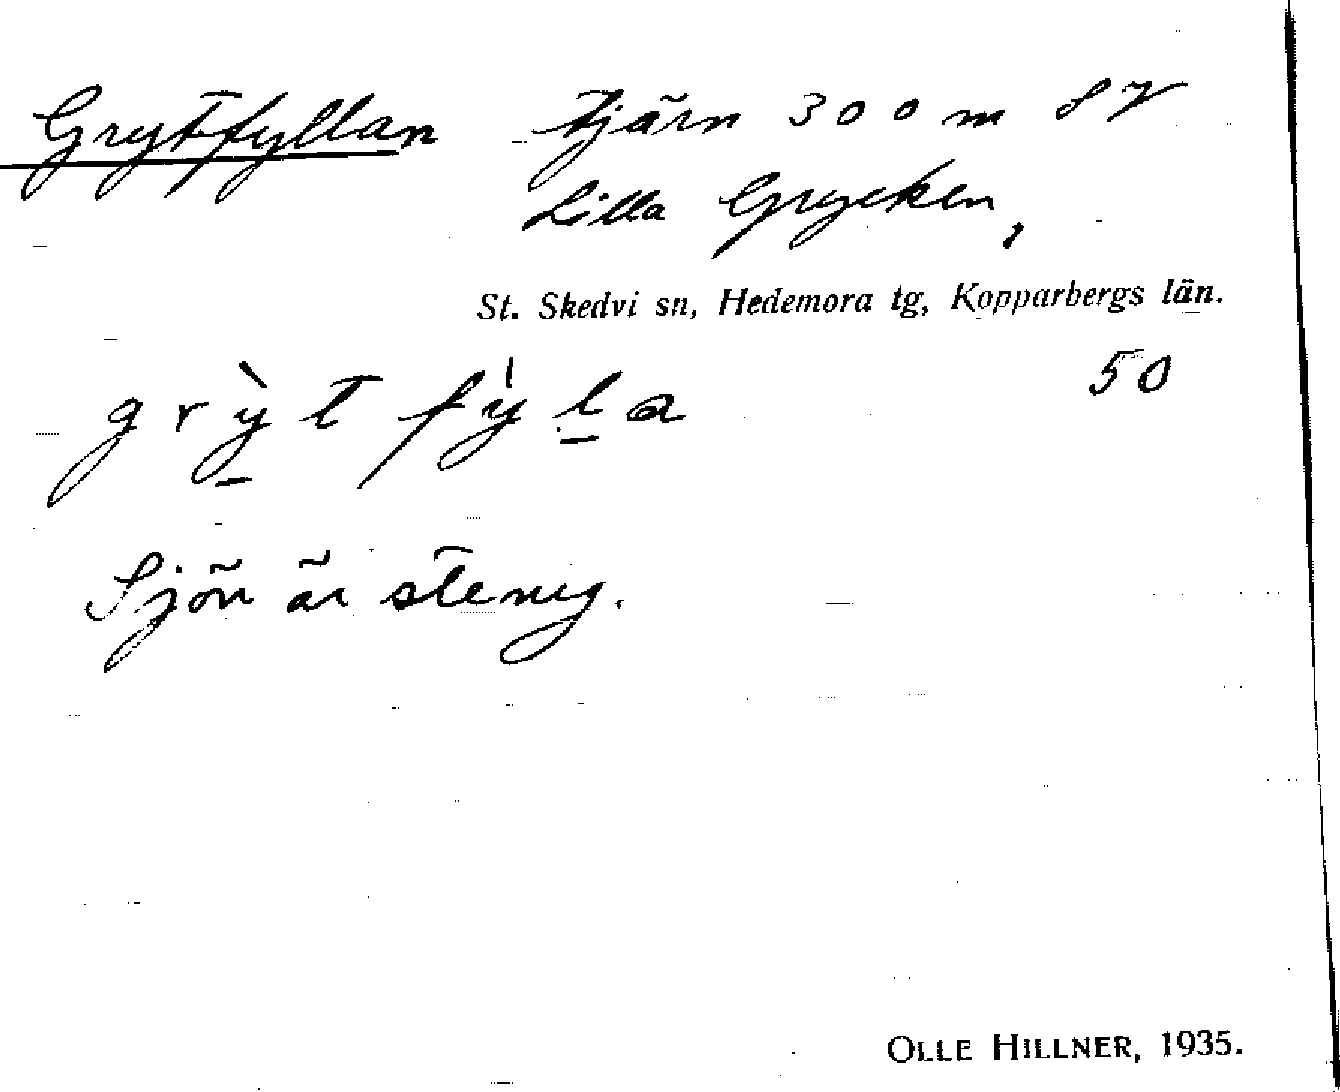 Grytfyllan tjärn 300 m SV
Lilla Grycken,
St. Skedvi sn, Hedemora tg, Kopparbergs län.
grỳt fy̍la 50
Sjön är stenig.
OLLE HILLNER, 1935.